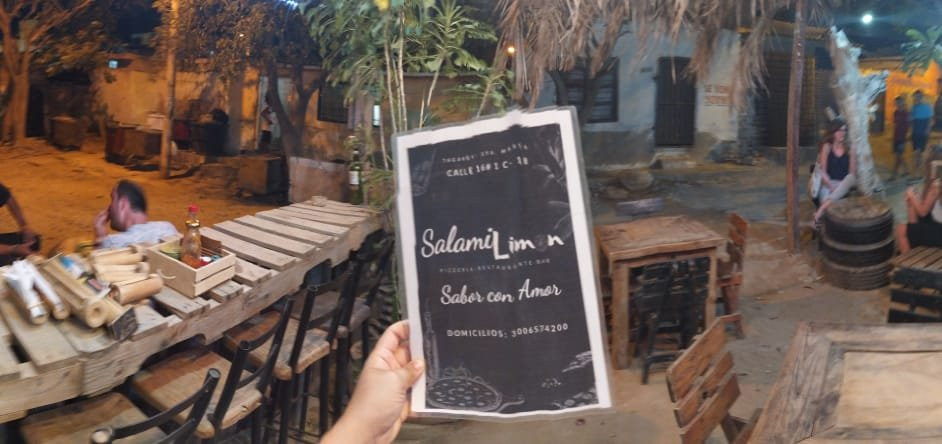 TAGANGA STA. MARTA
CALLE 16# 1 C- 18
SalamiLimon
PIZZERIA-RESTAURANTE-BAR
Sabor con Amor
DOMICILIOS: 3006574200